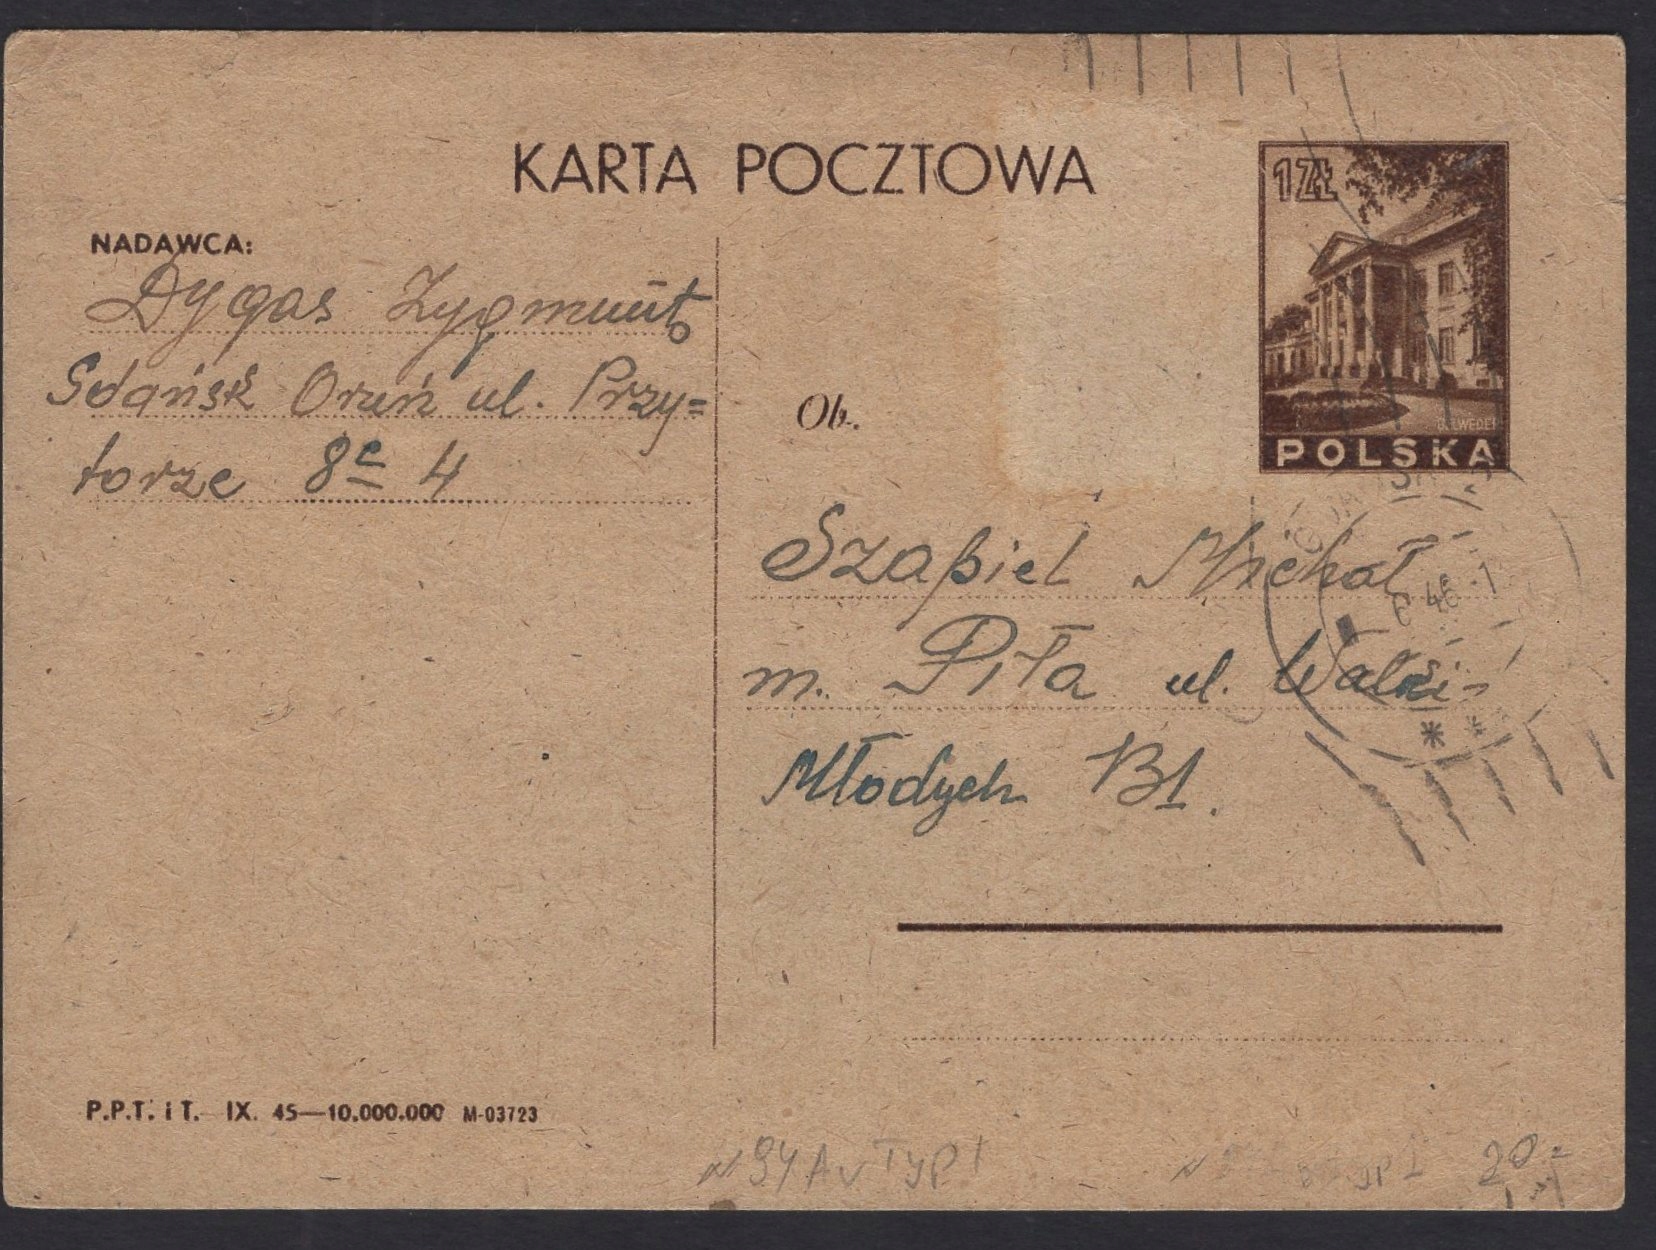 KARTA POCZTOWA
1 ZŁ
BELWEDER
POLSKA
NADAWCA:
Dygas Zygmunt
Gdańsk Oruń ul. Przy=
torze 8c 4
Ob.
Szapiel Michał
m. Piła ul. Walki
Młodych B1.
46
P.P.T. i T. IX. 45—10.000.000 M-03723
TYP I
20=